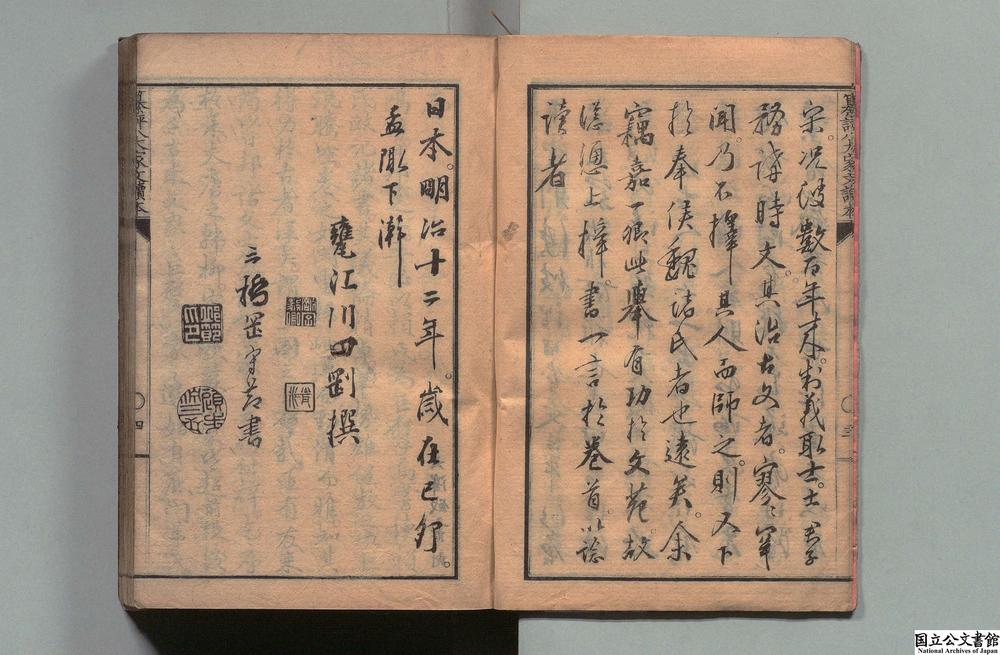 宋。况彼數百年來。制義取士。士君子
務講時文。其治古文者。寥〻罕
聞。乃不擇其人而師之。則又下
於奉侯魏諸氏者也遠矣。余
竊嘉一卿此擧有功於文苑。故
慫慂上梓。書一言於卷首。以諗
讀者
日本。明治十二年。歲在己卯。
孟陬下澣
甕江川田剛撰
書
四
國立公文書館
National Archives of Japan